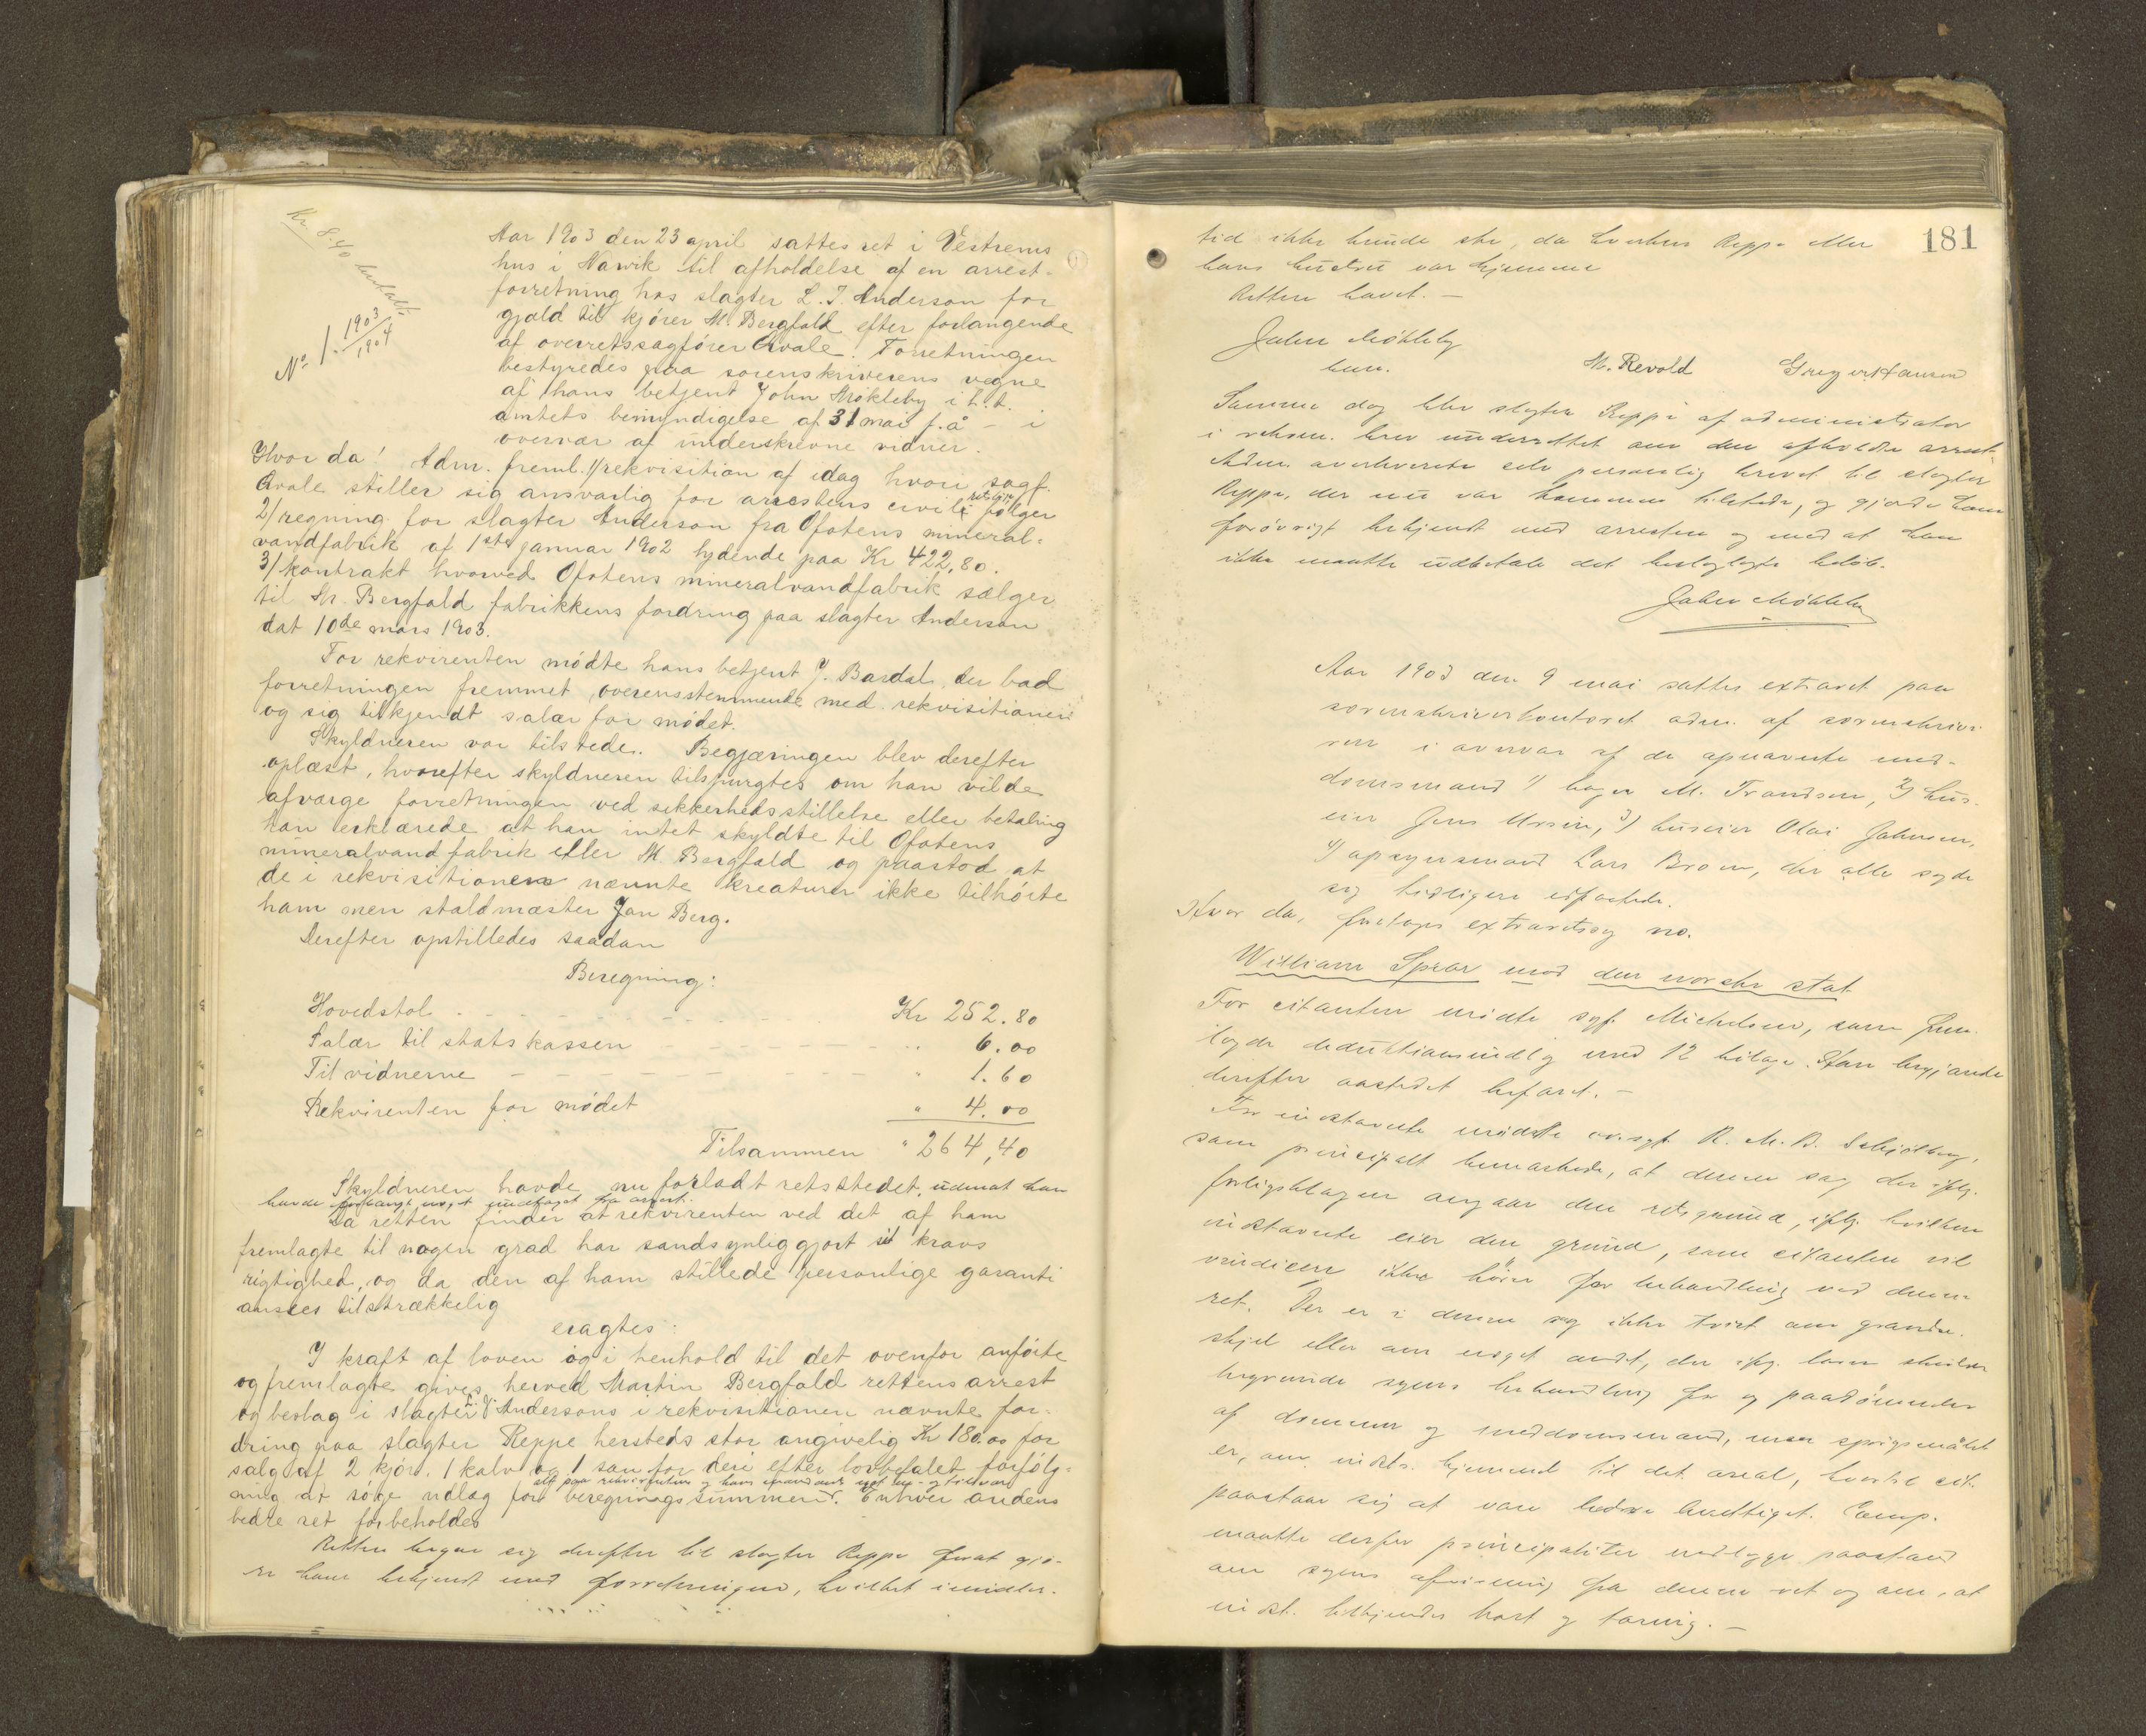 Kr. 8.40 betalt.
No. 1 1903/1904
Aar 1903 den 23 april sattes ret i Vestrems
hus i Narvik til afholdelse af en arrest-
forretning hos slagter L. J. Anderson for
gjæld til kjører M. Bergfald efter forlangende
af overretssagfører Qvale. Forretningen
bestyredes paa sorenskriverens vegne
af hans betjent John Møkleby i h. t.
amtets bemyndigelse af 31 mai f. å – i
overvær af underskrevne vidner.
Hvor da! Adm. freml. 1/ rekvisition af idag hvori sagf.
Qvale stiller sig ansvarlig for arrestens civile retslige følger
2/ regning for slagter Anderson fra Ofotens mineral-
vandfabrik af 1ste januar 1902 lydende paa Kr 422,80.
3/ kontrakt hvorved Ofotens mineralvandfabrik sælger
til M. Bergfald fabrikkens fordring paa slagter Anderson
dat 10de mars 1903.
For rekvirenten mødte hans betjent J. Bardal, der bad
forretningen fremmet overensstemmende med rekvisitionen
og sig tilkjendt salær for mødet.
Skyldneren var tilstede. Begjæringen blev derefter
oplæst, hvorefter skyldneren tilspurgtes om han vilde
afværge forretningen ved sikkerhedsstillelse eller betaling
han erklærede at han intet skyldte til Ofotens
mineralvandfabrik eller M Bergfald og paastod at
de i rekvisitionen nævnte kreaturer ikke tilhørte
ham men staldmæster Jan Berg.
Derefter opstilledes saadan
Beregning:
Hovedstol Kr 252.80
Salær til statskassen " 6.00
Til vidnerne " 1.60
Rekvirenten for mødet " 4.00
Tilsammen " 264,40
Skyldneren havde nu forladt retsstedet, udenat han
havde forlangt noget undtaget fra arrest.
Da retten finder at rekvirenten ved det af ham
fremlagte til nogen grad har sandsynliggjort sit kravs
rigtighed, og da den af ham stillede personlige garanti
ansees tilstrækkelig
eragtes:
I kraft af loven og i henhold til det ovenfor anførte
og fremlagte gives herved Martin Bergfald rettens arrest
og beslag i slagter L. J. Andersons i rekvisitionen nævnte for-
dring paa slagter Reppe hersteds stor angivelig Kr 180.00 for
salg af 2 kjør, 1 kalv og 1 sau for deri efter lovbefalet forfølg-
ning at søge udlæg for beregningssummen. Enhver andens
alt paa rekvirentens og hans
bedre ret forbeholdes
Retten begav sig derefter til slagter Reppe forat gjø-
re ham bekjendt med forretningen, hvilket imidler-
181
tid ikke kunde ske, da hverken Reppe eller
hans hustru var hjemme
Retten hævet. –
John Møkleby
M. Revold Greger Hansen
Samme dag blev slagter Reppe af administrator
i rekom. brev underrettet om den afholdte arrest.
Adm. overleverte selv personlig brevet til slagter
Reppe, der nu var kommen tilstede, og gjorde ham
forøvrigt bekjendt med arresten og med at han
ikke maatte udbetale det beslaglagte beløb.
John Møkleby
Aar 1903 den 9 mai sattes extraret paa
sorenskriverkontoret adm. af sorenskrive-
ren i overvær af de opnævnte med-
domsmænd 1) bager M. Trondsen, 2) hus-
eier Jens Ursin, 3) huseier Olai Johnsen,
4) opsynsmand Lars Brom, der alle sagde
sig tidligere edfæstede.
Hvor da, foretoges extraretssag no.
William Spear mod den norske stat
For citanten mødte sagf. Michelsen, som frem-
lagde deduktionsindlæg med 12 bilage. Han begjærede
derefter aastedet befaret. –
For indstævnte mødte ov.sagf. R. M. B. Schjølberg,
som principalt bemærkede, at denne sag der iflg.
forligsklagen angaar den retsgrund, iflg. hvilken
indstævnte eier den grund, som citanten vil
vindicere ikke hører for behandling ved denne
ret. Der er i denne sag ikke tvist om grænse-
skjel eller om noget andet, der iflg. loven skulde
begrunde sagens behandling for og paadømmelse
af dommer og meddomsmænd, men spørgsmålet
er, om indst. hjemmel til det areal, hvortil cit.
paastaar sig at være bedre berettiget. Comp.
maatte derfor principaliter nedlægge paastand
om sagens afvisning fra denne ret og om, at
indst. tilkjendes kost og tæring. –